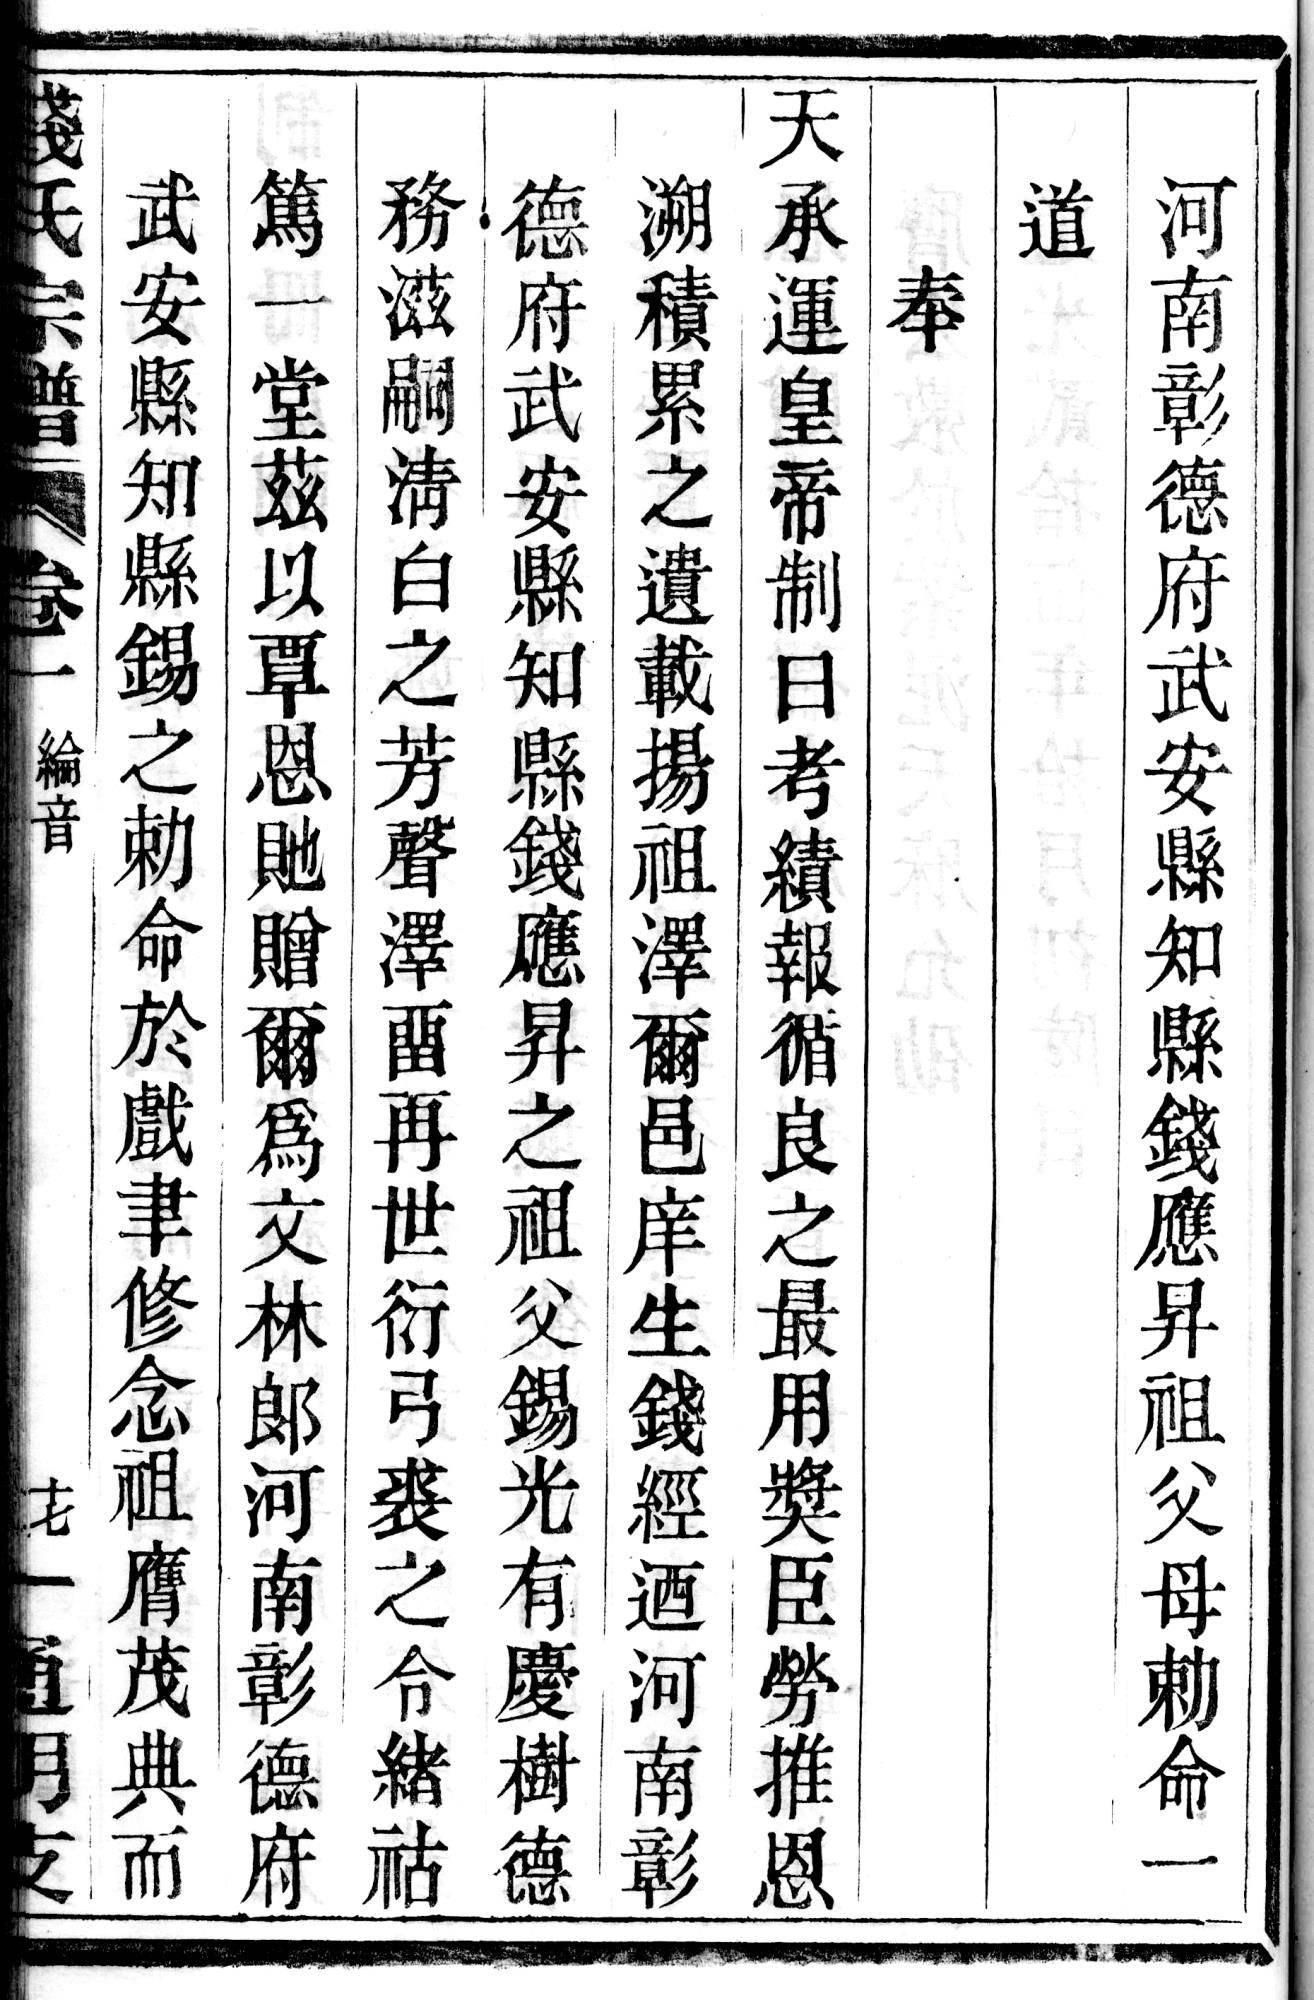 河南彰德府武安縣知縣錢應昇祖父母勅命一
道
奉
天承運皇帝制曰考績報循良之最用獎臣勞推恩
溯積累之遺載揚祖澤爾邑庠生錢經迺河南彰
德府武安縣知縣錢應昇之祖父錫光有慶樹德
務滋嗣淸白之芳聲澤畱再世衍弓裘之令緒祜
篤一堂茲以覃恩貤贈爾爲文林郎河南彰德府
武安縣知縣錫之勅命於戲聿修念祖膺茂典而
錢氏宗譜 卷一 綸音 十七 一 通明支